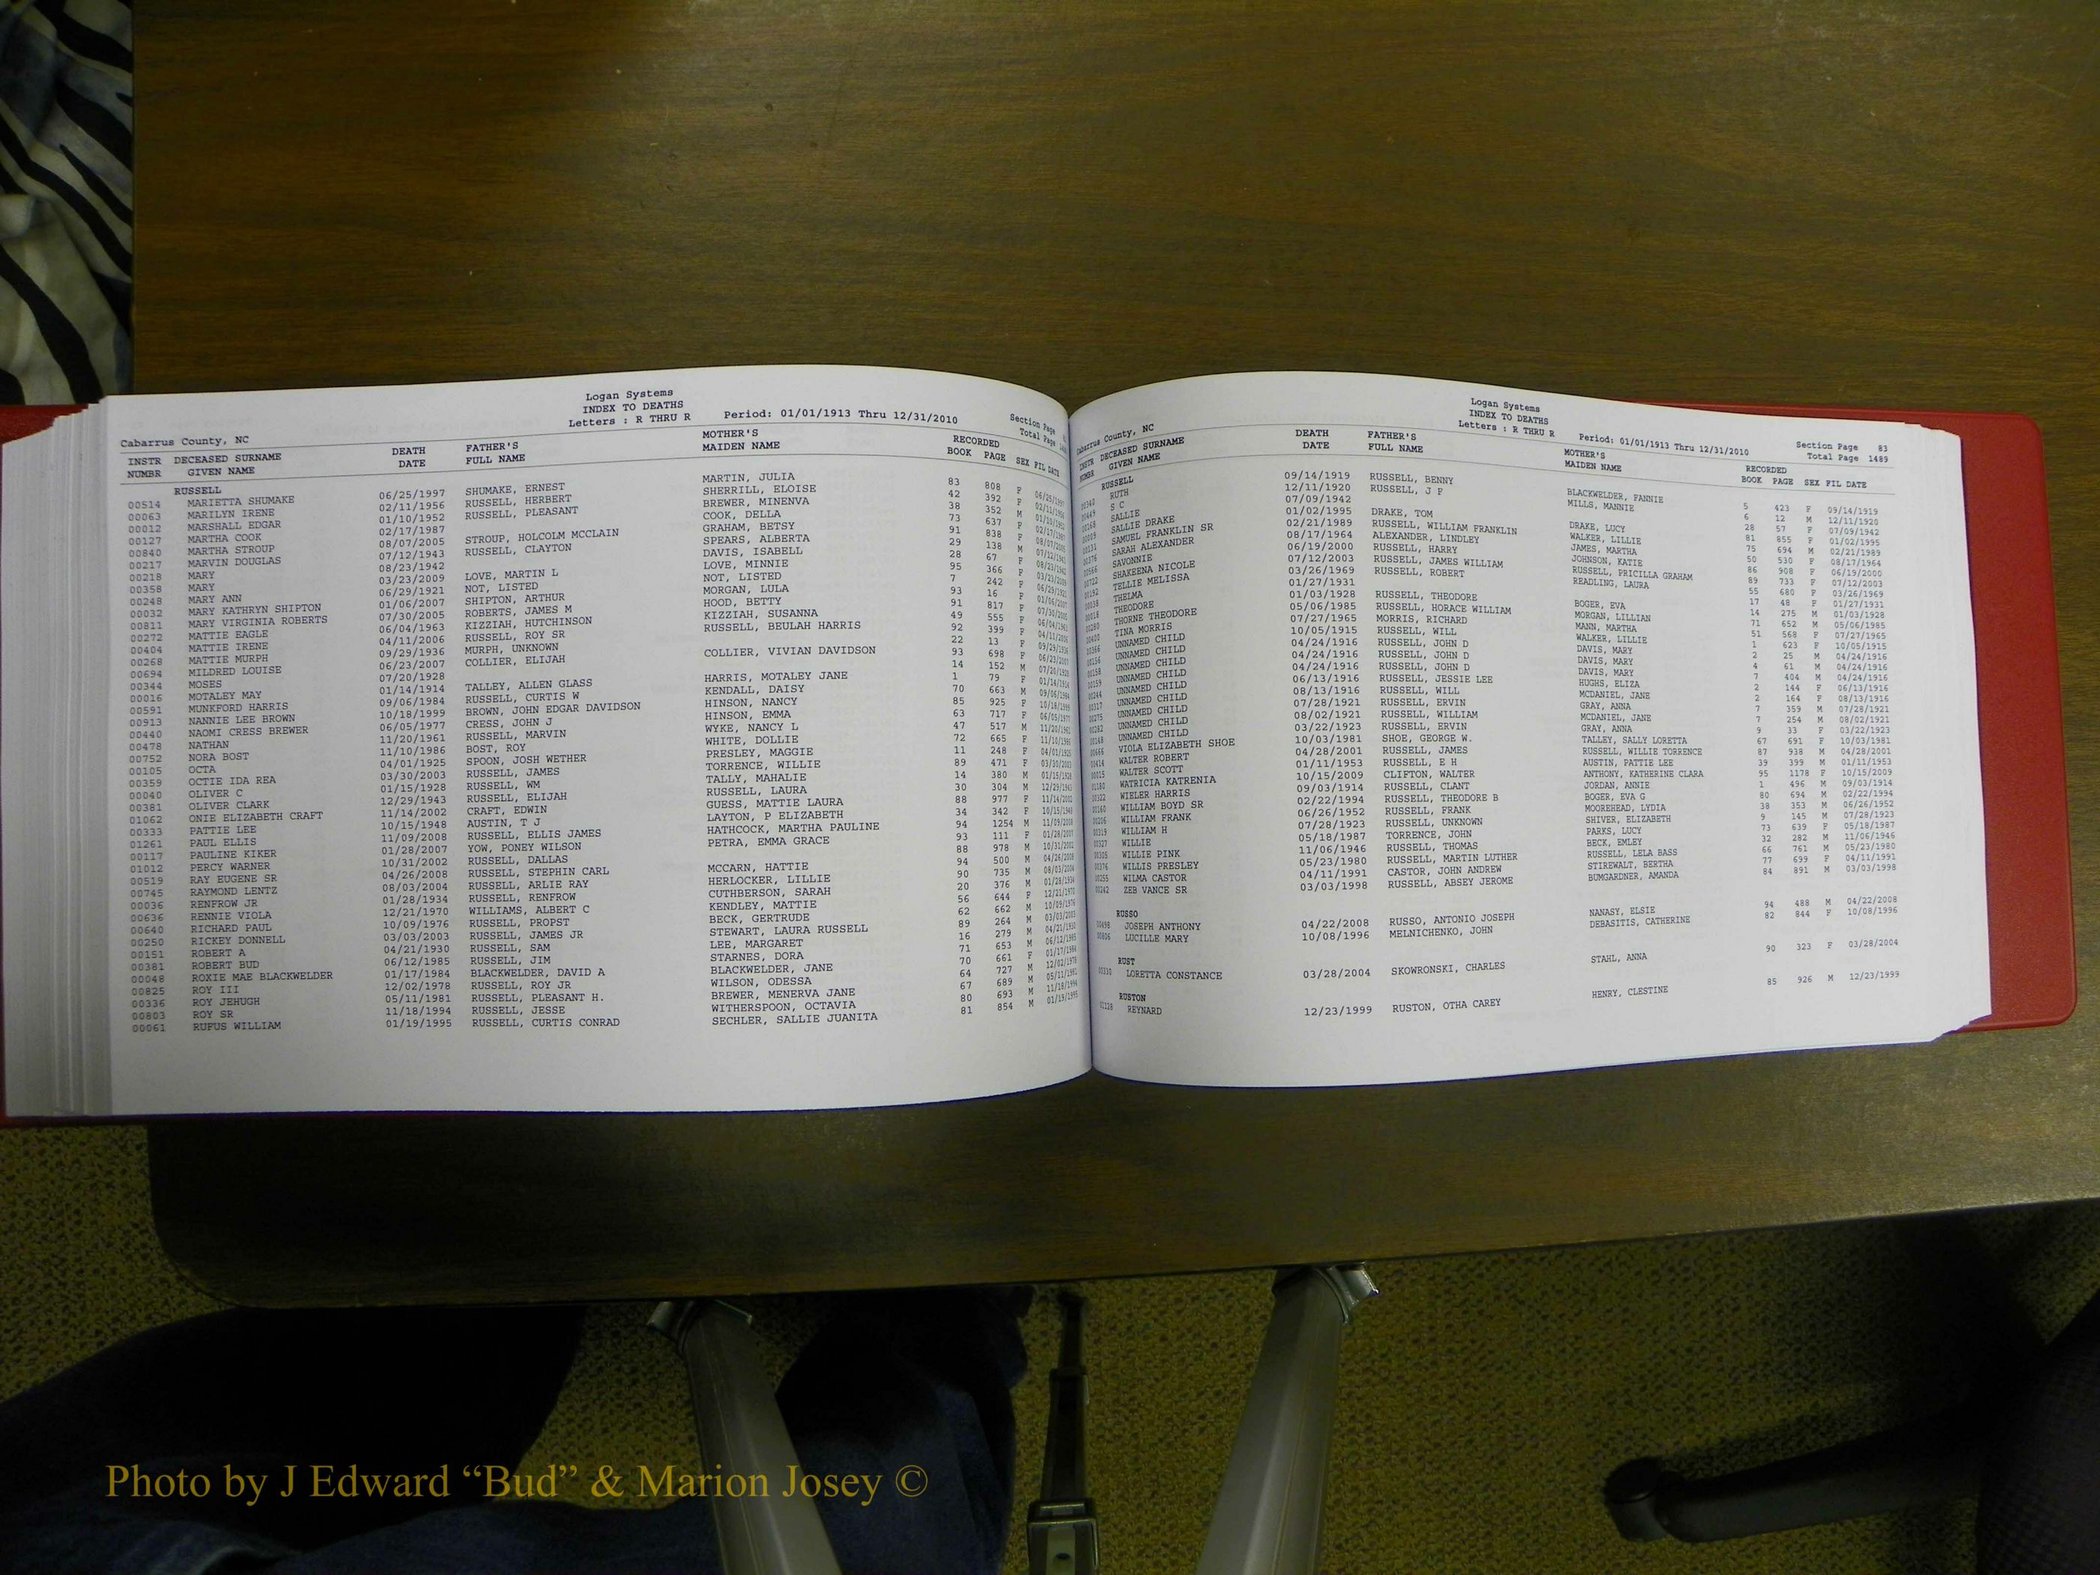 Logan Systems
INDEX TO DEATHS
Cabarrus County, NC Letters : R THRU R Period: 01/01/1913 Thru 12/31/2010 Section Page
Total Page
INSTR NUMBR DECEASED SURNAME GIVEN NAME DEATH DATE FATHER'S FULL NAME MOTHER'S MAIDEN NAME RECORDED BOOK PAGE SEX FIL DATE
RUSSELL
00514 MARIETTA SHUMAKE 06/25/1997 SHUMAKE, ERNEST MARTIN, JULIA 83 808 F 06/25/1997
00063 MARILYN IRENE 02/11/1956 RUSSELL, HERBERT SHERRILL, ELOISE 42 392 F 02/11/1956
00012 MARSHALL EDGAR 01/10/1952 RUSSELL, PLEASANT BREWER, MINENVA 38 352 M 01/10/1952
00127 MARTHA COOK 02/17/1987 COOK, DELLA 73 637 F 02/17/1987
00840 MARTHA STROUP 08/07/2005 STROUP, HOLCOLM MCCLAIN GRAHAM, BETSY 91 838 F 08/07/2005
00217 MARVIN DOUGLAS 07/12/1943 RUSSELL, CLAYTON SPEARS, ALBERTA 29 138 M 07/12/1943
00218 MARY 08/23/1942 DAVIS, ISABELL 28 67 F 08/23/1942
00358 MARY 03/23/2009 LOVE, MARTIN L LOVE, MINNIE 95 366 F 03/23/2009
00248 MARY ANN 06/29/1921 NOT, LISTED NOT, LISTED 7 242 F 06/29/1921
00032 MARY KATHRYN SHIPTON 01/06/2007 SHIPTON, ARTHUR MORGAN, LULA 93 16 F 01/06/2007
00811 MARY VIRGINIA ROBERTS 07/30/2005 ROBERTS, JAMES M HOOD, BETTY 91 817 F 07/30/2005
00272 MATTIE EAGLE 06/04/1963 KIZZIAH, HUTCHINSON KIZZIAH, SUSANNA 49 555 F 06/04/1963
00404 MATTIE IRENE 04/11/2006 RUSSELL, ROY SR RUSSELL, BEULAH HARRIS 92 399 F 04/11/2006
00268 MATTIE MURPH 09/29/1936 MURPH, UNKNOWN 22 13 F 09/29/1936
00694 MILDRED LOUISE 06/23/2007 COLLIER, ELIJAH COLLIER, VIVIAN DAVIDSON 93 698 F 06/23/2007
00344 MOSES 07/20/1928 14 152 M 07/20/1928
00016 MOTALEY MAY 01/14/1914 TALLEY, ALLEN GLASS HARRIS, MOTALEY JANE 1 79 F 01/14/1914
00591 MUNKFORD HARRIS 09/06/1984 RUSSELL, CURTIS W KENDALL, DAISY 70 663 M 09/06/1984
00913 NANNIE LEE BROWN 10/18/1999 BROWN, JOHN EDGAR DAVIDSON HINSON, NANCY 85 925 F 10/18/1999
00440 NAOMI CRESS BREWER 06/05/1977 CRESS, JOHN J HINSON, EMMA 63 717 F 06/05/1977
00478 NATHAN 11/20/1961 RUSSELL, MARVIN WYKE, NANCY L 47 517 M 11/20/1961
00752 NORA BOST 11/10/1986 BOST, ROY WHITE, DOLLIE 72 665 F 11/10/1986
00105 OCTA 04/01/1925 SPOON, JOSH WETHER PRESLEY, MAGGIE 11 248 F 04/01/1925
00359 OCTIE IDA REA 03/30/2003 RUSSELL, JAMES TORRENCE, WILLIE 89 471 F 03/30/2003
00040 OLIVER C 01/15/1928 RUSSELL, WM TALLY, MAHALIE 14 380 M 01/15/1928
00381 OLIVER CLARK 12/29/1943 RUSSELL, ELIJAH RUSSELL, LAURA 30 304 M 12/29/1943
01062 ONIE ELIZABETH CRAFT 11/14/2002 CRAFT, EDWIN GUESS, MATTIE LAURA 88 977 F 11/14/2002
00333 PATTIE LEE 10/15/1948 AUSTIN, T J LAYTON, P ELIZABETH 34 342 F 10/15/1948
01261 PAUL ELLIS 11/09/2008 RUSSELL, ELLIS JAMES HATHCOCK, MARTHA PAULINE 94 1254 M 11/09/2008
00117 PAULINE KIKER 01/28/2007 YOW, PONEY WILSON PETRA, EMMA GRACE 93 111 F 01/28/2007
01012 PERCY WARNER 10/31/2002 RUSSELL, DALLAS 88 978 M 10/31/2002
00519 RAY EUGENE SR 04/26/2008 RUSSELL, STEPHIN CARL MCCARN, HATTIE 94 500 M 04/26/2008
00745 RAYMOND LENTZ 08/03/2004 RUSSELL, ARLIE RAY HERLOCKER, LILLIE 90 735 M 08/03/2004
00036 RENFROW JR 01/28/1934 RUSSELL, RENFROW CUTHBERSON, SARAH 20 376 M 01/28/1934
00636 RENNIE VIOLA 12/21/1970 WILLIAMS, ALBERT C KENDLEY, MATTIE 56 644 F 12/21/1970
00640 RICHARD PAUL 10/09/1976 RUSSELL, PROPST BECK, GERTRUDE 62 662 M 10/09/1976
00250 RICKEY DONNELL 03/03/2003 RUSSELL, JAMES JR STEWART, LAURA RUSSELL 89 264 M 03/03/2003
00151 ROBERT A 04/21/1930 RUSSELL, SAM LEE, MARGARET 16 279 M 04/21/1930
00381 ROBERT BUD 06/12/1985 RUSSELL, JIM STARNES, DORA 71 653 M 06/12/1985
00048 ROXIE MAE BLACKWELDER 01/17/1984 BLACKWELDER, DAVID A BLACKWELDER, JANE 70 661 F 01/17/1984
00825 ROY III 12/02/1978 RUSSELL, ROY JR WILSON, ODESSA 64 727 M 12/02/1978
00336 ROY JEHUGH 05/11/1981 RUSSELL, PLEASANT H. BREWER, MENERVA JANE 67 689 M 05/11/1981
00803 ROY SR 11/18/1994 RUSSELL, JESSE WITHERSPOON, OCTAVIA 80 693 M 11/18/1994
00061 RUFUS WILLIAM 01/19/1995 RUSSELL, CURTIS CONRAD SECHLER, SALLIE JUANITA 81 854 M 01/19/1995
Logan Systems
INDEX TO DEATHS
Cabarrus County, NC Letters : R THRU R Period: 01/01/1913 Thru 12/31/2010 Section Page 83
Total Page 1489
INSTR NUMBR DECEASED SURNAME GIVEN NAME DEATH DATE FATHER'S FULL NAME MOTHER'S MAIDEN NAME RECORDED BOOK PAGE SEX FIL DATE
RUSSELL
00340 RUTH 09/14/1919 RUSSELL, BENNY BLACKWELDER, FANNIE 5 423 F 09/14/1919
00449 S C 12/11/1920 RUSSELL, J F MILLS, MANNIE 6 12 M 12/11/1920
00168 SALLIE 07/09/1942 28 57 F 07/09/1942
00009 SALLIE DRAKE 01/02/1995 DRAKE, TOM DRAKE, LUCY 81 855 F 01/02/1995
00131 SAMUEL FRANKLIN SR 02/21/1989 RUSSELL, WILLIAM FRANKLIN WALKER, LILLIE 75 694 M 02/21/1989
00376 SARAH ALEXANDER 08/17/1964 ALEXANDER, LINDLEY JAMES, MARTHA 50 530 F 08/17/1964
00566 SAVONNIE 06/19/2000 RUSSELL, HARRY JOHNSON, KATIE 86 908 F 06/19/2000
00722 SHAKEENA NICOLE 07/12/2003 RUSSELL, JAMES WILLIAM RUSSELL, PRICILLA GRAHAM 89 733 F 07/12/2003
00192 TELLIE MELISSA 03/26/1969 RUSSELL, ROBERT READLING, LAURA 55 680 F 03/26/1969
00038 THELMA 01/27/1931 17 48 F 01/27/1931
00018 THEODORE 01/03/1928 RUSSELL, THEODORE BOGER, EVA 14 275 M 01/03/1928
00280 THORNE THEODORE 05/06/1985 RUSSELL, HORACE WILLIAM MORGAN, LILLIAN 71 652 M 05/06/1985
00400 TINA MORRIS 07/27/1965 MORRIS, RICHARD MANN, MARTHA 51 568 F 07/27/1965
00366 UNNAMED CHILD 10/05/1915 RUSSELL, WILL WALKER, LILLIE 1 623 F 10/05/1915
00156 UNNAMED CHILD 04/24/1916 RUSSELL, JOHN D DAVIS, MARY 2 25 M 04/24/1916
00158 UNNAMED CHILD 04/24/1916 RUSSELL, JOHN D DAVIS, MARY 4 61 M 04/24/1916
00159 UNNAMED CHILD 04/24/1916 RUSSELL, JOHN D DAVIS, MARY 7 404 M 04/24/1916
00244 UNNAMED CHILD 06/13/1916 RUSSELL, JESSIE LEE HUGHS, ELIZA 2 144 F 06/13/1916
00317 UNNAMED CHILD 08/13/1916 RUSSELL, WILL MCDANIEL, JANE 2 164 F 08/13/1916
00275 UNNAMED CHILD 07/28/1921 RUSSELL, ERVIN GRAY, ANNA 7 359 M 07/28/1921
00282 UNNAMED CHILD 08/02/1921 RUSSELL, WILLIAM MCDANIEL, JANE 7 254 M 08/02/1921
00148 UNNAMED CHILD 03/22/1923 RUSSELL, ERVIN GRAY, ANNA 9 33 F 03/22/1923
00666 VIOLA ELIZABETH SHOE 10/03/1981 SHOE, GEORGE W. TALLEY, SALLY LORETTA 67 691 F 10/03/1981
00414 WALTER ROBERT 04/28/2001 RUSSELL, JAMES RUSSELL, WILLIE TORRENCE 87 938 M 04/28/2001
00015 WALTER SCOTT 01/11/1953 RUSSELL, E H AUSTIN, PATTIE LEE 39 399 M 01/11/1953
01180 WATRICIA KATRENIA 10/15/2009 CLIFTON, WALTER ANTHONY, KATHERINE CLARA 95 1178 F 10/15/2009
00322 WIELER HARRIS 09/03/1914 RUSSELL, CLANT JORDAN, ANNIE 1 496 M 09/03/1914
00160 WILLIAM BOYD SR 02/22/1994 RUSSELL, THEODORE B BOGER, EVA G 80 694 M 02/22/1994
00206 WILLIAM FRANK 06/26/1952 RUSSELL, FRANK MOOREHEAD, LYDIA 38 353 M 06/26/1952
00319 WILLIAM H 07/28/1923 RUSSELL, UNKNOWN SHIVER, ELIZABETH 9 145 M 07/28/1923
00327 WILLIE 05/18/1987 TORRENCE, JOHN PARKS, LUCY 73 639 F 05/18/1987
00305 WILLIE PINK 11/06/1946 RUSSELL, THOMAS BECK, EMLEY 32 282 M 11/06/1946
00376 WILLIS PRESLEY 05/23/1980 RUSSELL, MARTIN LUTHER RUSSELL, LELA BASS 66 761 M 05/23/1980
00255 WILMA CASTOR 04/11/1991 CASTOR, JOHN ANDREW STIREWALT, BERTHA 77 699 F 04/11/1991
00242 ZEB VANCE SR 03/03/1998 RUSSELL, ABSEY JEROME BUMGARDNER, AMANDA 84 891 M 03/03/1998
RUSSO
00498 JOSEPH ANTHONY 04/22/2008 RUSSO, ANTONIO JOSEPH NANASY, ELSIE 94 488 M 04/22/2008
00806 LUCILLE MARY 10/08/1996 MELNICHENKO, JOHN DEBASITIS, CATHERINE 82 844 F 10/08/1996
RUST
00330 LORETTA CONSTANCE 03/28/2004 SKOWRONSKI, CHARLES STAHL, ANNA 90 323 F 03/28/2004
RUSTON
01128 REYNARD 12/23/1999 RUSTON, OTHA CAREY HENRY, CLESTINE 85 926 M 12/23/1999
Photo by J Edward “Bud” & Marion Josey ©